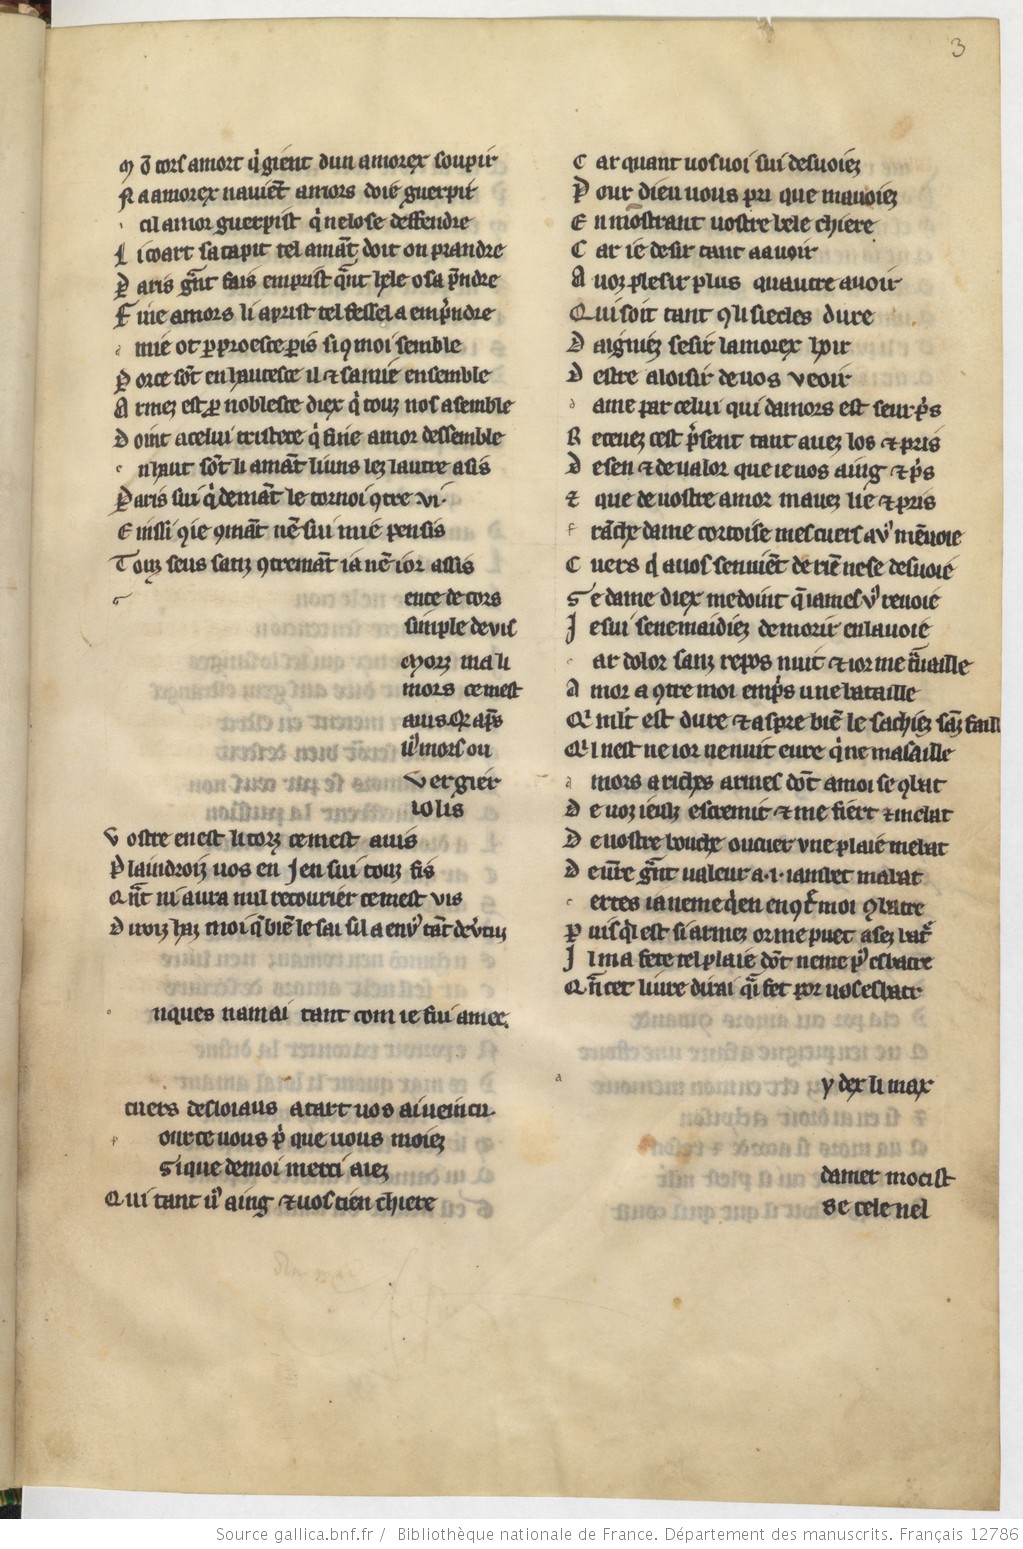 3
M õ cors amort q̃ gient dun amorex soupir
N a amorex navient amors doie guerpir
cil amor guerpist q̃ nelose deffendre
L i coart sa tapit tel amãt doit on prandre
P aris gñt fais emprist q̃nt hele osa p̃ndre
F ine amors li aprist tel fessel a emp̃ndre
mie ot p proesce peris si 9 moi semble
P orce sõt en hautesce il ⁊ samie ensemble
A rmez est p noblesce diex q̃ touz nos asemble
D oint acelui tristece q̃ fine amor dessemble
n haut sõt li amãt luns lez lautre asis
P aris sui q̃ demãt le tornoi 9tre vi.
E nissi 9ie 9mãt nẽ sui mie pensis
T ouz seus sanz 9tremãt ia nẽ ior assis
ence de cors
simple de vis
Morz ma li
mors ce mest
auis. Qr ap̃s
mors ou
vergier
iolis
V ostre en est li torz ce mest auis
P laindroiz vos en Jen sui touz fis
Q ñt ni aura nul recourier ce mest vis
D moi q̃ biẽ le sai sil a tãt
nques namai tant com ie fui amee
cuers desloiaus a tart vos ai
our ce vous p̃ que vous moiez
Si que de moi merci aiez
Q ui tant aing ⁊ vos tien chiere
C ar quant vos voi sui desvoiez
P our dieu vous pri que mavoiez
E n mostrant vostre bele chiere
C ar ie desir tant a avoir
A voz plesir plus quautre avoir
Q ui soit tant 9 li siecles dure
D aigniez sesir lamorex hoir
D estre aloisir de vos veoir
ame par celui qui damors est seurp̃s
R etenez cest p̃sent tant avez los ⁊ pris
D e sen ⁊ de valor que ie vos aing ⁊ p̃s
⁊ que de vostre amor mavez lie ⁊ pris
rãche dame cortoise mes cuers a mẽvoie
C uers q̃ a vos sen viẽt de riẽ ne se desvoie
S e dame diex me doint q̃ iames renoie
J e sui se ne maidiez de morir en la voie
ar dolor sanz repos nuit ⁊ ior me
A mor a 9tre moi emp̃s une bataille
Qr mlt est dure ⁊ aspre biẽ le sachiez sãz faill
Qr l nest ne ior ne nuit eure q̃ ne masaille
mors a riches armes dõt a moi se 9bat
D e voz ieux escremit ⁊ me fiert ⁊ mebat
D e vostre bouche ou cuer vne plaie mebat
D gñt valeur a .i. ianslet mabat
ertes ia ne me q̃en en 9t̃ moi 9batre
P uis q̃l est si armez or me puet asez bat̃
J l ma fete tel plaie dõt ne me p̃ esbatre
Q ñ cet livre dirai q̃ fet por vos esbatr
y dex li max
damer mocist
se cele nel
Source gallica.bnf.fr / Bibliothèque nationale de France. Département des manuscrits. Français 12786